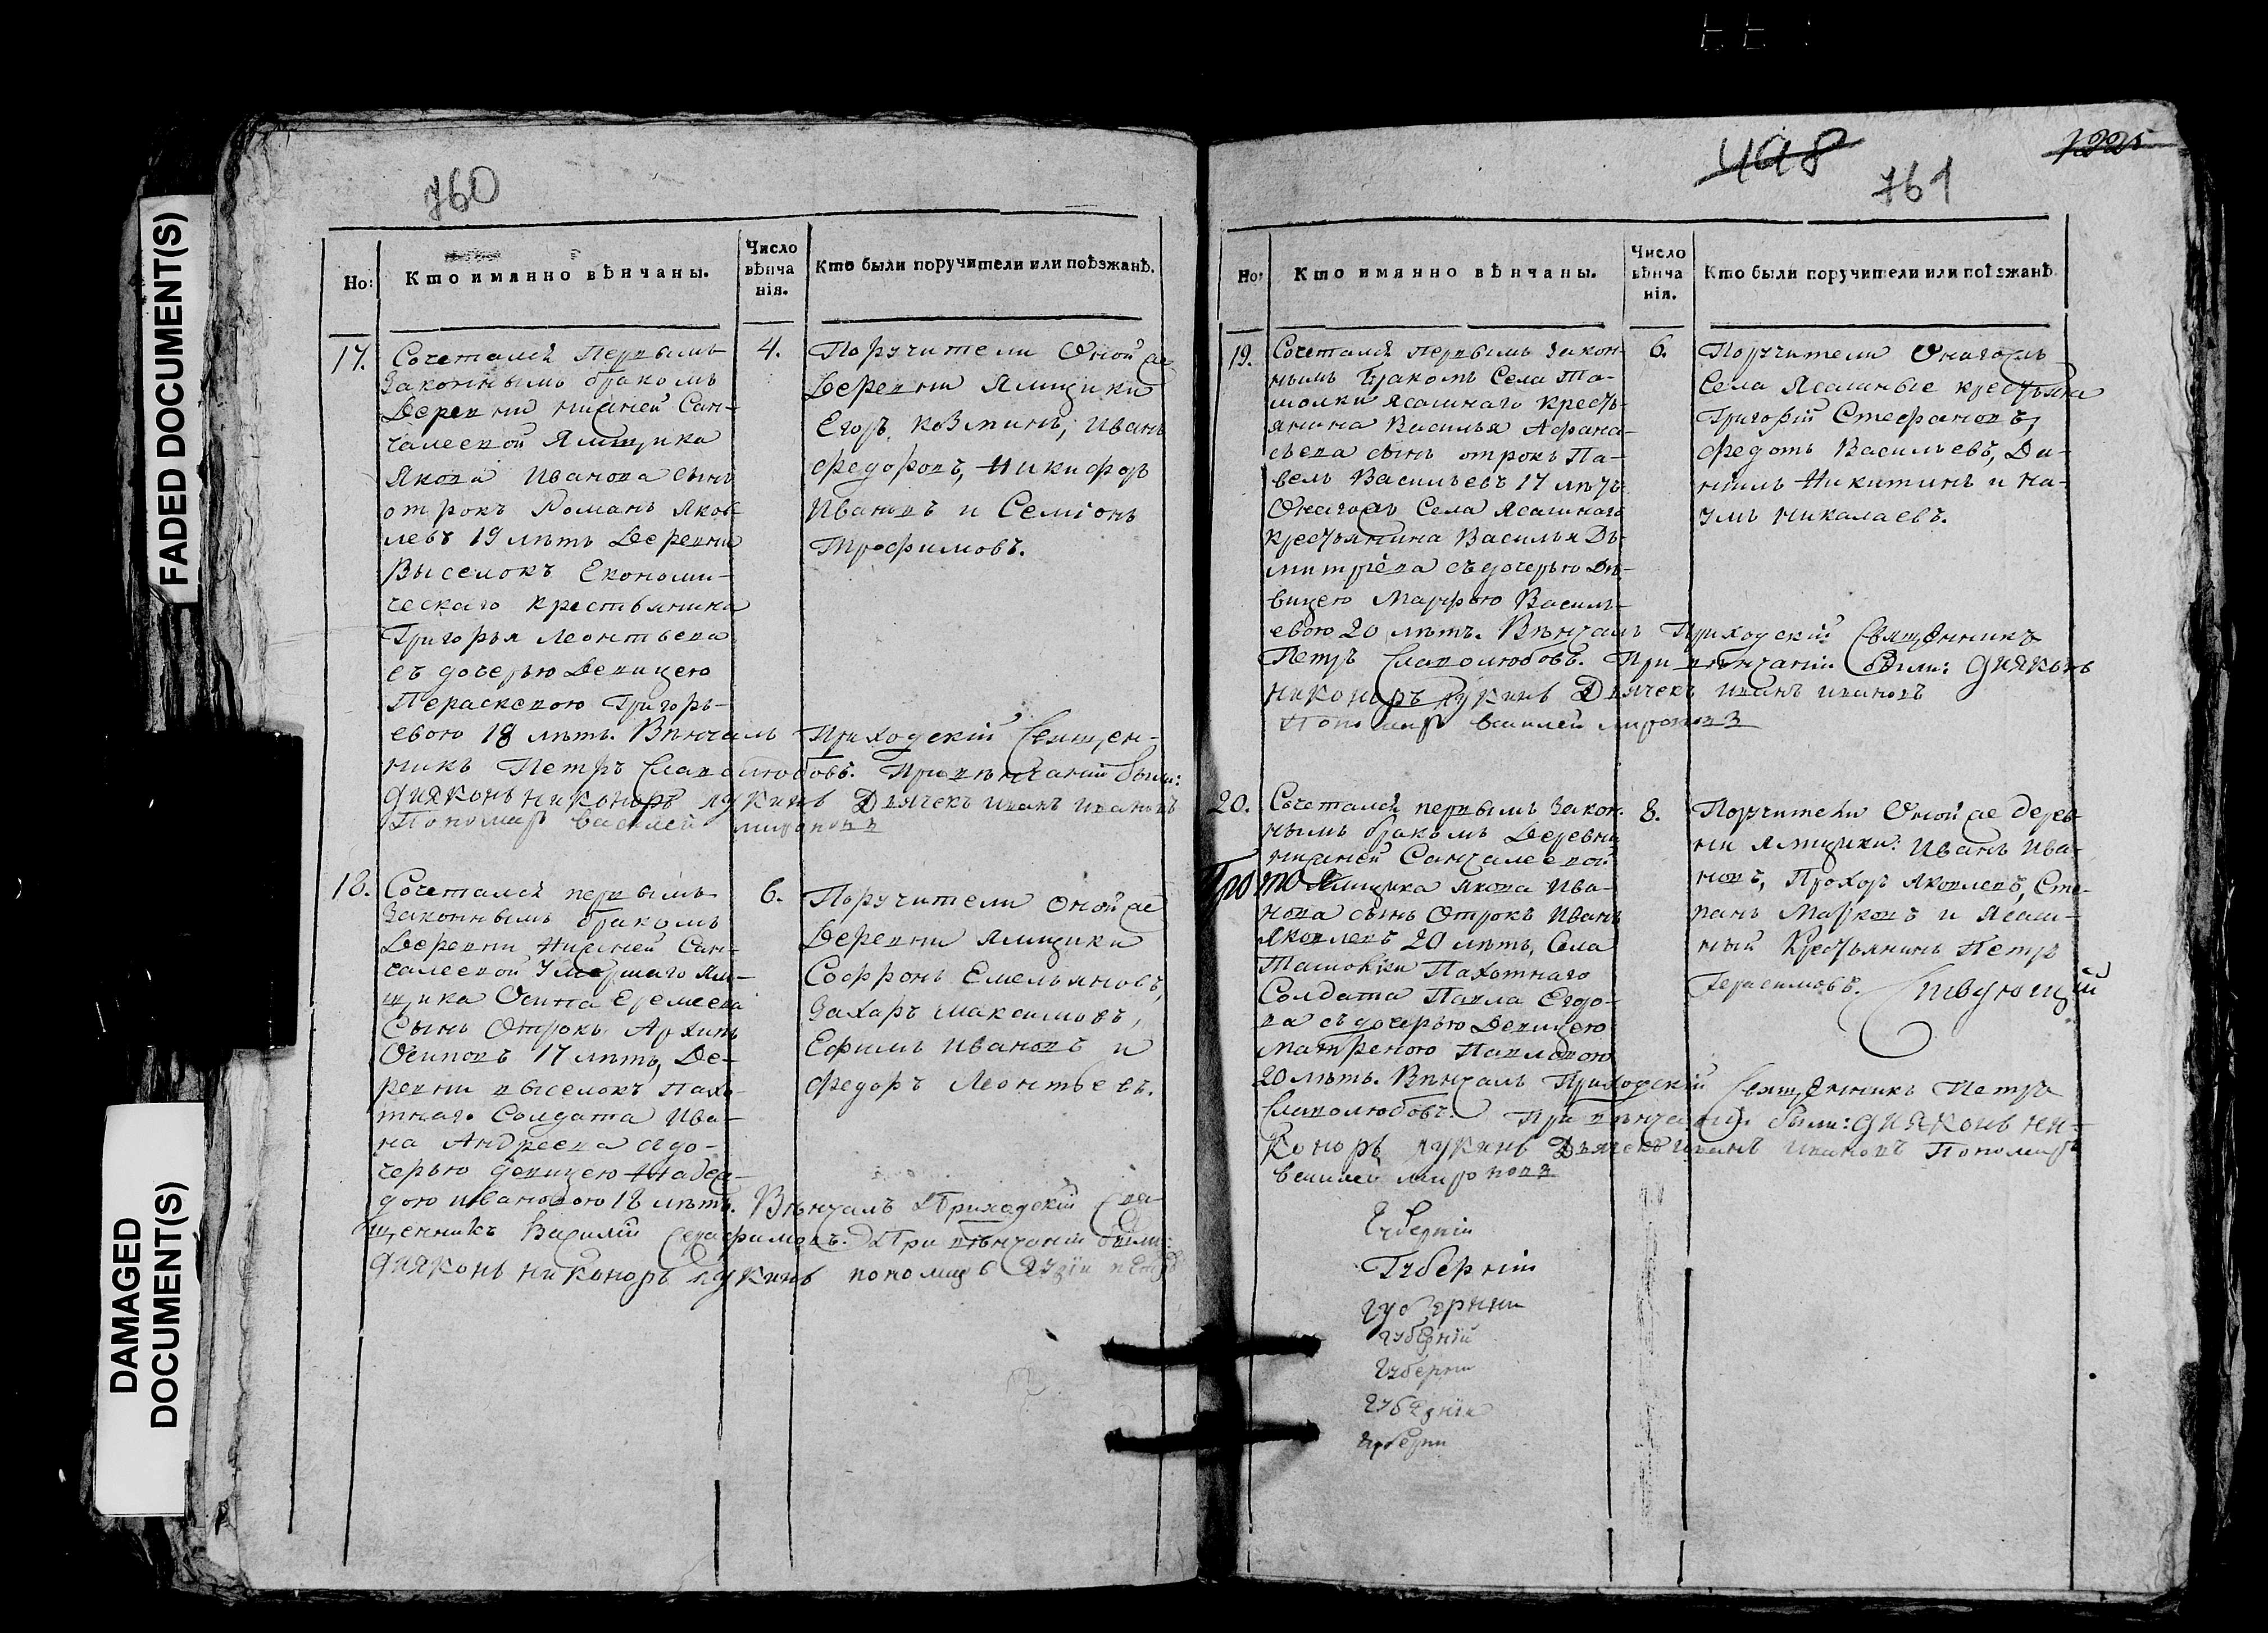 FADED DOCUMENT(S)
DAMAGED
DOCUMENT(S)
760
Но:
Кто имянно вѣнчаны.
Число
вѣнча
нія.
Кто были поручители или поѣзжанѣ.
17.
Сочетался Первымъ
Законнымъ бракомъ
Деревни нижней Сан-
чалеевой Ямщика
Якова Иванова сынъ
отрокъ Романъ Яков
левъ 19 лѣтъ Деревни
Выселокъ Економи-
ческаго крестьянина
Григорья Леонтьева
съ дочерью Девицею
Пераскевою Григорь-
евою 18 лѣтъ. Вѣнчалъ Приходскій Священ-
никъ Петръ Славолюбовъ. При вѣнчаніи были:
дияконъ никоноръ лукинъ Дьячекъ иванъ ивановъ
Пономарь василей мироновъ
4.
Поручители Оной же
Деревни Ямщики
Егоръ козминъ, иванъ
федоровъ, Никифоръ
Ивановъ и Семіонъ
Трофимовъ.
18.
Сочетался первымъ
Законнымъ бракомъ
Деревни Нижней Сан-
чалеевой Умершаго Ям-
щика Осипа Еремеева
Сынъ Отрокъ Архипъ
Осиповъ 17 лѣтъ, Де-
ревни выселокъ Пахо-
тнаго Солдата Ива-
на Андреева съ до-
черью девицею Надеж-
дою ивановою 18 лѣтъ. Вѣнчалъ Приходскій Свя-
щенникъ Василій Серафимовъ. При вѣнчаніи были:
дияконъ никоноръ лукинъ пономарь
6.
Поручители оной же
Деревни Ямщики
Софронъ Емельяновъ,
Захаръ максимовъ,
Ефимъ Ивановъ и
федоръ Леонтьевъ.
498
761
1225
Но:
Кто имянно вѣнчаны.
Число
вѣнча
нія.
Кто были поручители или поѣзжанѣ.
19.
Сочетался первымъ закон-
нымъ бракомъ Села Та-
молки ясашнаго кресть-
янина Василья Афана-
сьева сынъ отрокъ Па-
велъ Васильевъ 17 лѣтъ
Онагожъ Села ясашнаго
крестьянина Василья Дь-
митріева съ дочерью Дѣ-
вицею Марфою Василь-
евою 20 лѣтъ. Вѣнчалъ Приходскій Священникъ
Петръ Славолюбовъ. При вѣнчаніи были: дияконъ
никоноръ лукинъ Дьячекъ иванъ ивановъ
Пономарь василей мироновъ
6.
Поручители Онагожъ
Села Ясашные крестьяна
Григорій Стефановъ,
федотъ Васильевъ, Да-
ниилъ Никитинъ и на-
умъ николаевъ.
20.
Сочетался первымъ Закон-
нымъ бракомъ Деревни
нижней Санчалеевой
Ямщика Якова Ива-
нова сынъ Отрокъ Иванъ
Яковлевъ 20 лѣтъ, Села
Ташовки Пахотнаго
Солдата Павла Егоро-
ва съ дочерью Девицею
матреною Павловою
20 лѣтъ. Вѣнчалъ Приходскій Священникъ Петръ
Славолюбовъ. При вѣнчаніи были: дияконъ ни-
коноръ лукинъ Дьячекъ иванъ ивановъ Пономарь
василей мироновъ
8.
Поручители Оной же дерев-
ни ямщики: Иванъ Ива-
новъ, Прохоръ Яковлевъ, Сте-
панъ Марковъ и Ясаш-
ный Крестьянинъ Петръ
Герасимовъ.
Губерніи
Губерніи
губернии
губерніи
губерніи
губерніи
губерни